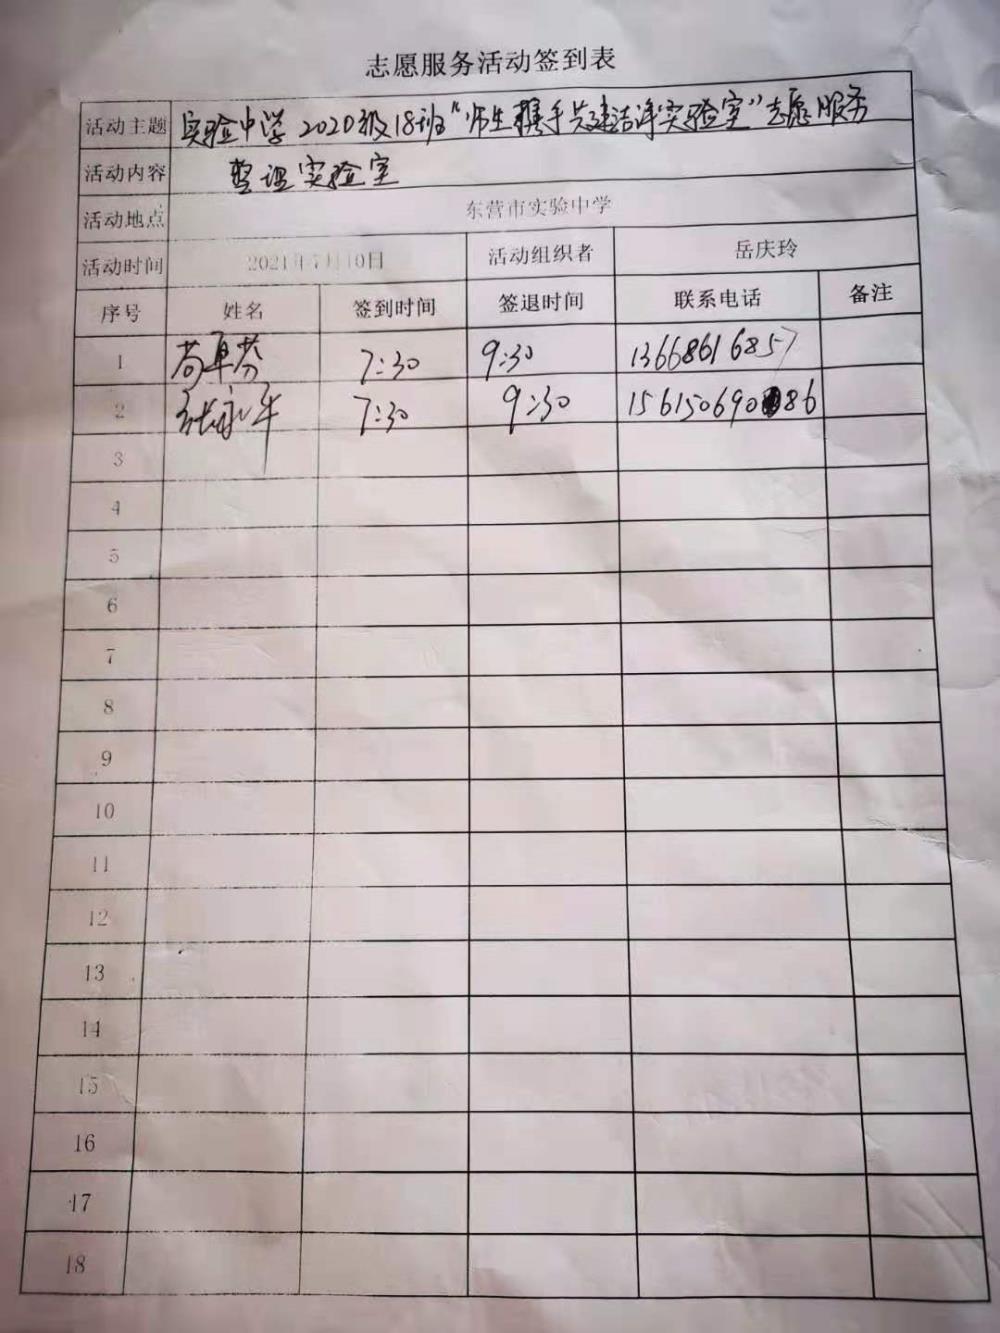 志愿服务活动签到表
活动主题 实验中学2020级18班“师生携手共建洁净实验室”志愿服务
活动内容 整理实验室
活动地点 东营市实验中学
活动时间 2021年7月10日 活动组织者 岳庆玲
序号 姓名 签到时间 签退时间 联系电话 备注
1 7:30 9:30 13668616857
2 张永军 7:30 9:30 15615069086
3
4
5
6
7
8
9
10
11
12
13
14
15
16
17
18